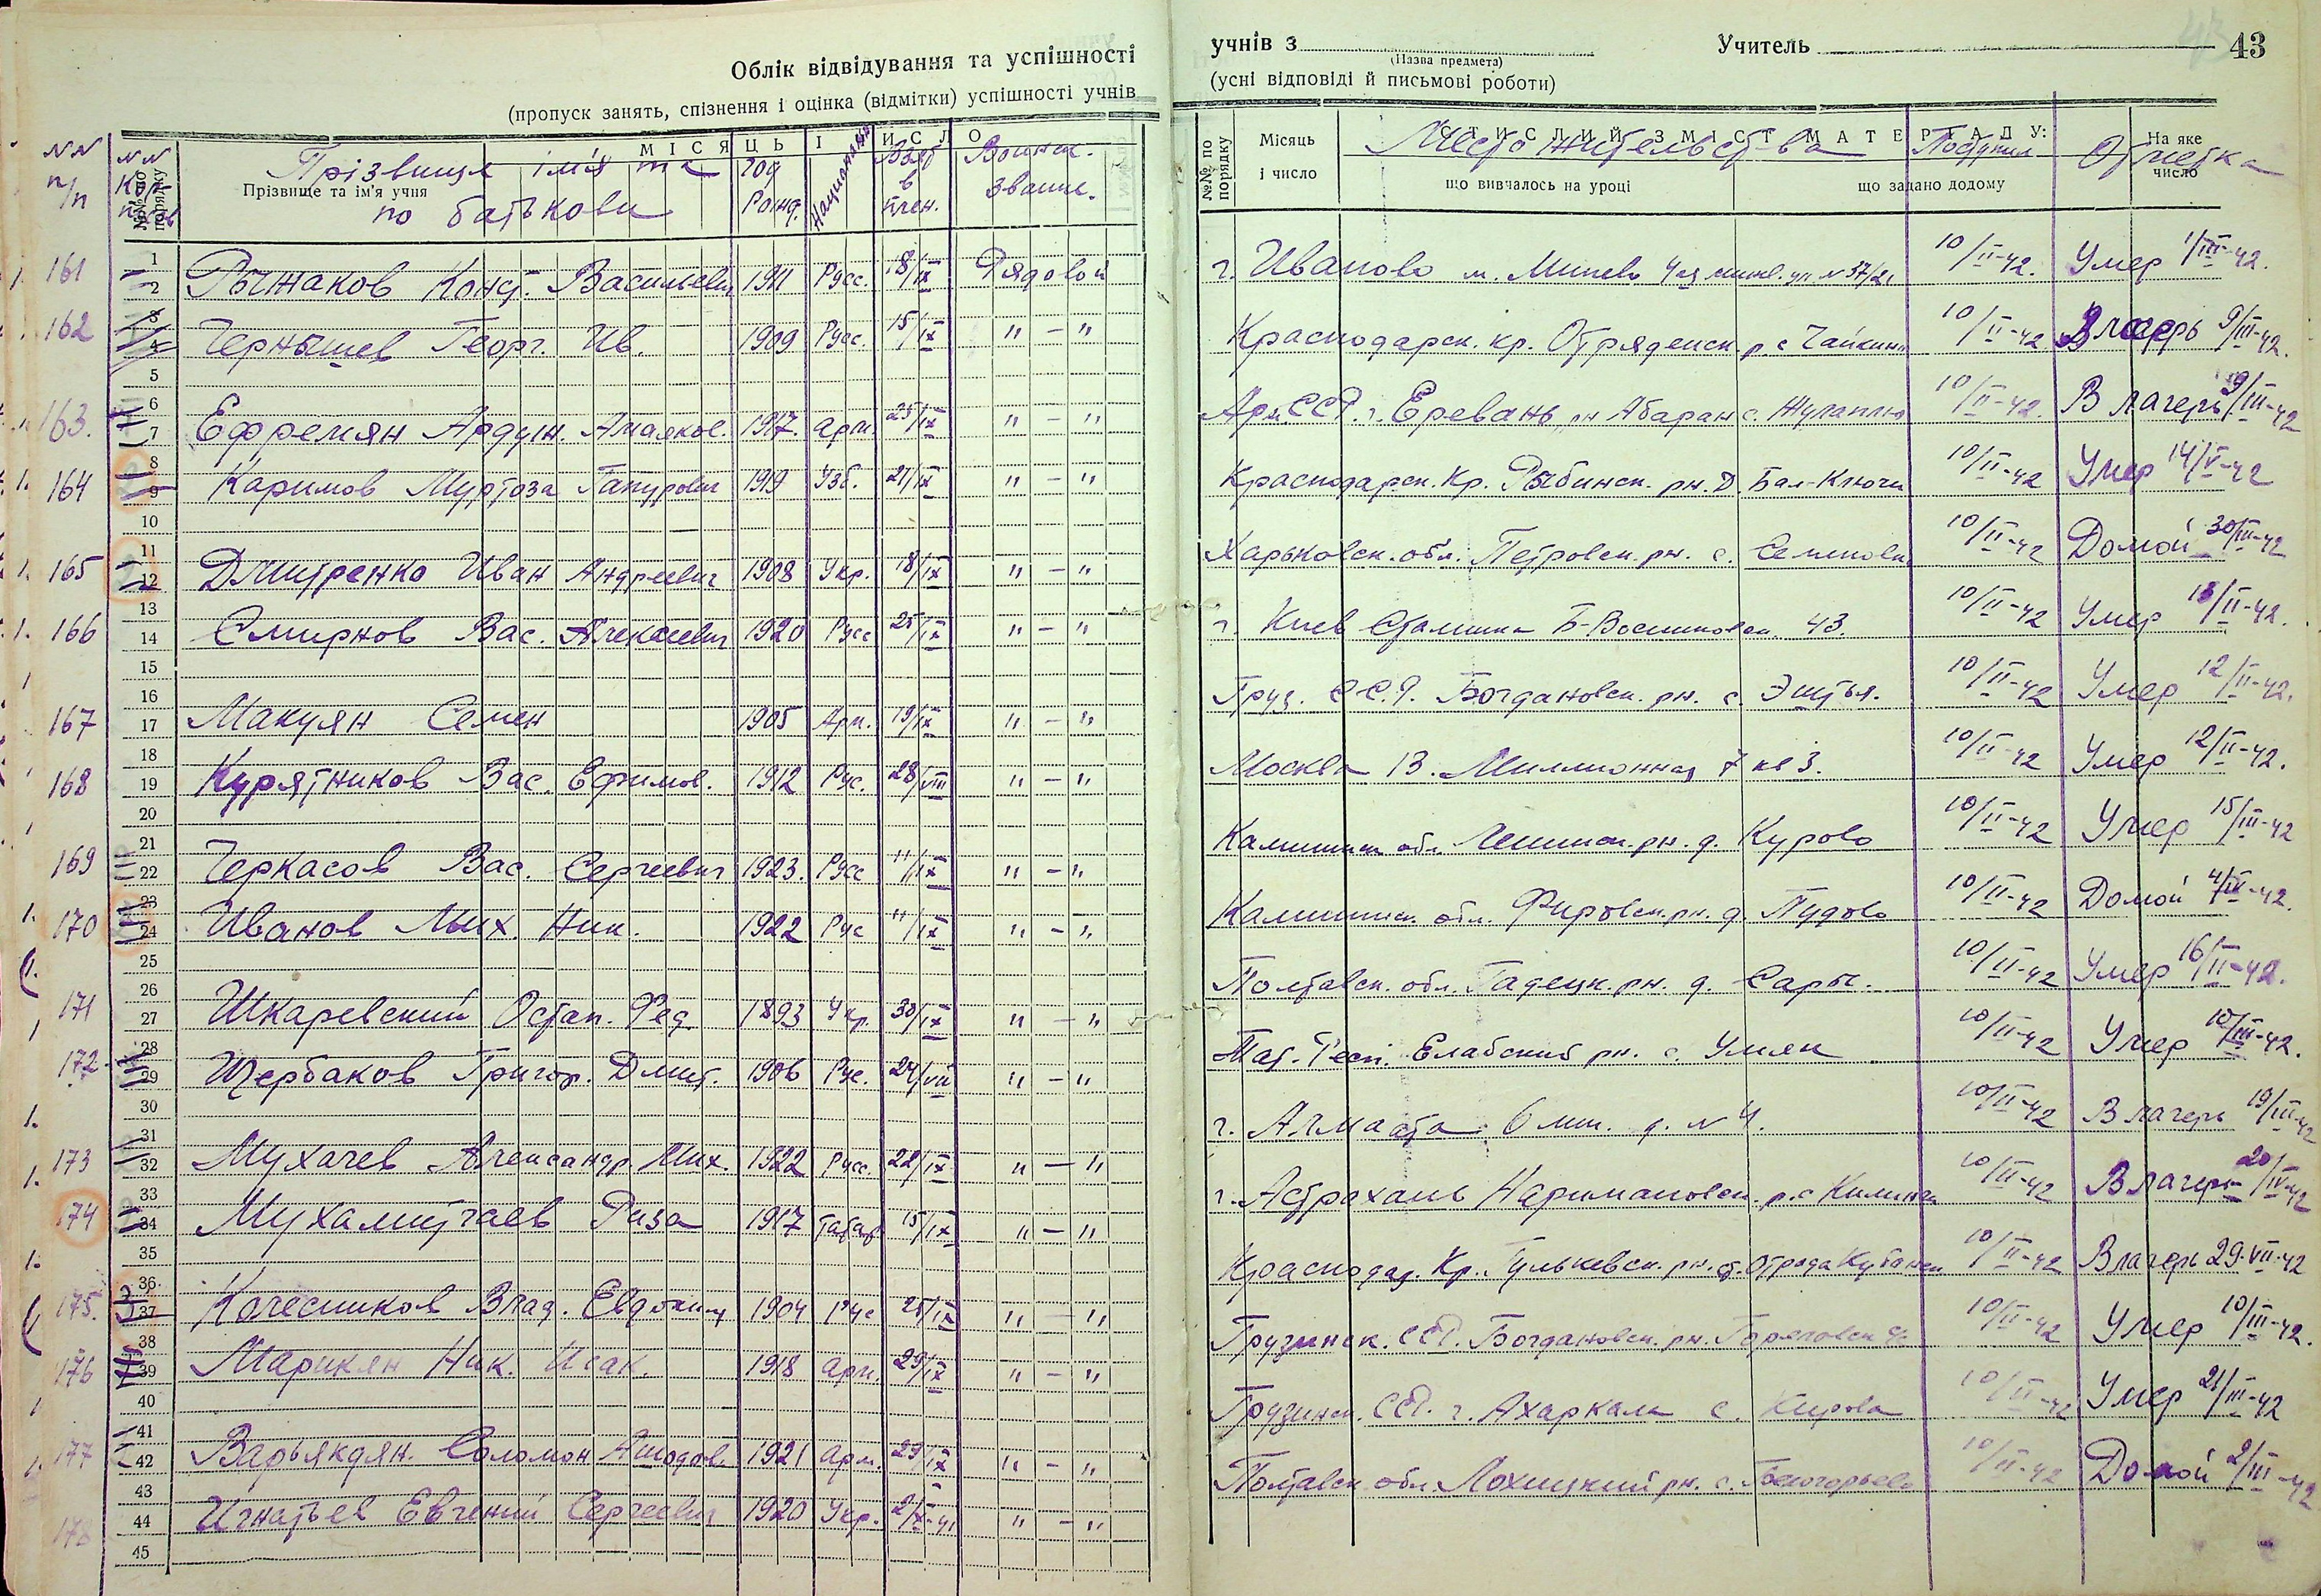 Облік відвідування та успішності
(пропуск занять, спізнення і оцінка (відмітки) успішності учнів
учнів з Учитель 43
(Назва предмета)
(усні відповіді й письмові роботи)
МІСЯЦЬ І ЧИСЛО
NN п/п
№№ по порядку
Прізвище та ім'я учня
Прізвище ім'я та по батькови
год рожд.
Национальн.
Взят в плен.
Воинск. звание.
№№ по порядку
Місяць і число
СТИСЛИЙ ЗМІСТ МАТЕРІАЛУ:
що вивчалось на уроці
що задано додому
На яке число
Место жительства
Поступил
Отметка
161 Рычжаков Конст. Васильевич 1911 Русс. 18/IX Рядовой г. Иваново м. Минево 4ая ул N 37/21 10/II-42. Умер 1/III-42.
162 Чернышев Георг. Ив. 1909 Русс. 15/IX " - " Краснодарск. кр. Отряденск. р. с Чайкин 10/II-42 В лагерь 9/III-42.
163. Ефремян Ардуш. Амаяков. 1917. арм. 25/IX " - " Арм. ССР. г. Ереван рн Абаран с. 10/II-42. В лагерь 9/III-42
164 Каримов Муртоза Гапурович 1919 Узб. 21/IX " - " Краснодарск. Кр. Рыбинск. рн. д. Бал-Ключи 10/II-42 Умер 14/V-42
165 Дмитренко Иван Андреевич 1908 Укр. 18/IX " - " Харьковск. обл. Петровск. рн. с. 10/II-42 Домой 30/III-42
166 Смирнов Вас. Алексеевич 1920 Русс 25/IX " - " г. Киев Сталинка 43. 10/II-42 Умер 18/II-42.
167 Макуян Семен 1905 Арм. 19/IX " - " Груз. С.С.Р. Богдановск. рн. с. Эштья. 10/II-42 Умер 12/II-42.
168 Курятников Вас. Ефимов. 1912 Рус. 28/VIII " - " Москва 13. Миллионная 7 кв 3. 10/II-42 Умер 12/II-42.
169 Черкасов Вас. Сергеевич 1923. Русс 11/IX " - " Калининск обл. Ленинск. рн. д. Курово 10/II-42 Умер 15/III-42
170 Иванов Мих. Ник. 1922 Рус 11/IX " - " Калининск. обл. Фировск. рн. д. Пудово 10/II-42 Домой 4/IV-42.
171 Шкаревский Остап. Фед. 1893 Укр. 30/IX " - " Полтавск. обл. Гадецк. рн. д. Сары. 10/II-42 Умер 16/II-42.
172 Щербаков Григор. Дмит. 1906 Рус. 24/VII " - " Тат. Респ. Елабский рн. с. Умяк 10/II-42 Умер 10/III-42.
173 Мухачев Александр. Мих. 1922 Русс. 22/IX " - " г. Алмаата 6 мик. д. N 4. 10/II-42 В лагерь 19/III-42
174 Мухамитгаев Риза 1917 Татар 15/IX " - " г. Астрахань Наримановск. р. с Килинчи 10/III-42 В лагерь 20/IV-42
175. Колесников Влад. Евдоким 1904 Рус 25/IX " - " Краснодар. Кр. Гулькевск. рн. ст. Отрада Кубанск 10/II-42 В лагерь 29.VII-42
176 Марикян Ник. Исак. 1918 арм. 29/IX " - " Грузинск. ССР. Богдановск. рн. 10/II-42 Умер 10/III-42.
177 Варьякдян. Соломон Ашодов. 1921 арм. 29/IX " - " Грузинск. ССР. г. Ахаркала с. Кирова 10/II-42 Умер 21/III-42
178 Игнатьев Евгений Сергеевич 1920 Укр. 2/X-41 " - " Полтавск обл. Лохицкий рн. с. 10/II-42 Домой 2/III-42
1
2
3
4
5
6
7
8
9
10
11
12
13
14
15
16
17
18
19
20
21
22
23
24
25
26
27
28
29
30
31
32
33
34
35
36
37
38
39
40
41
42
43
44
45